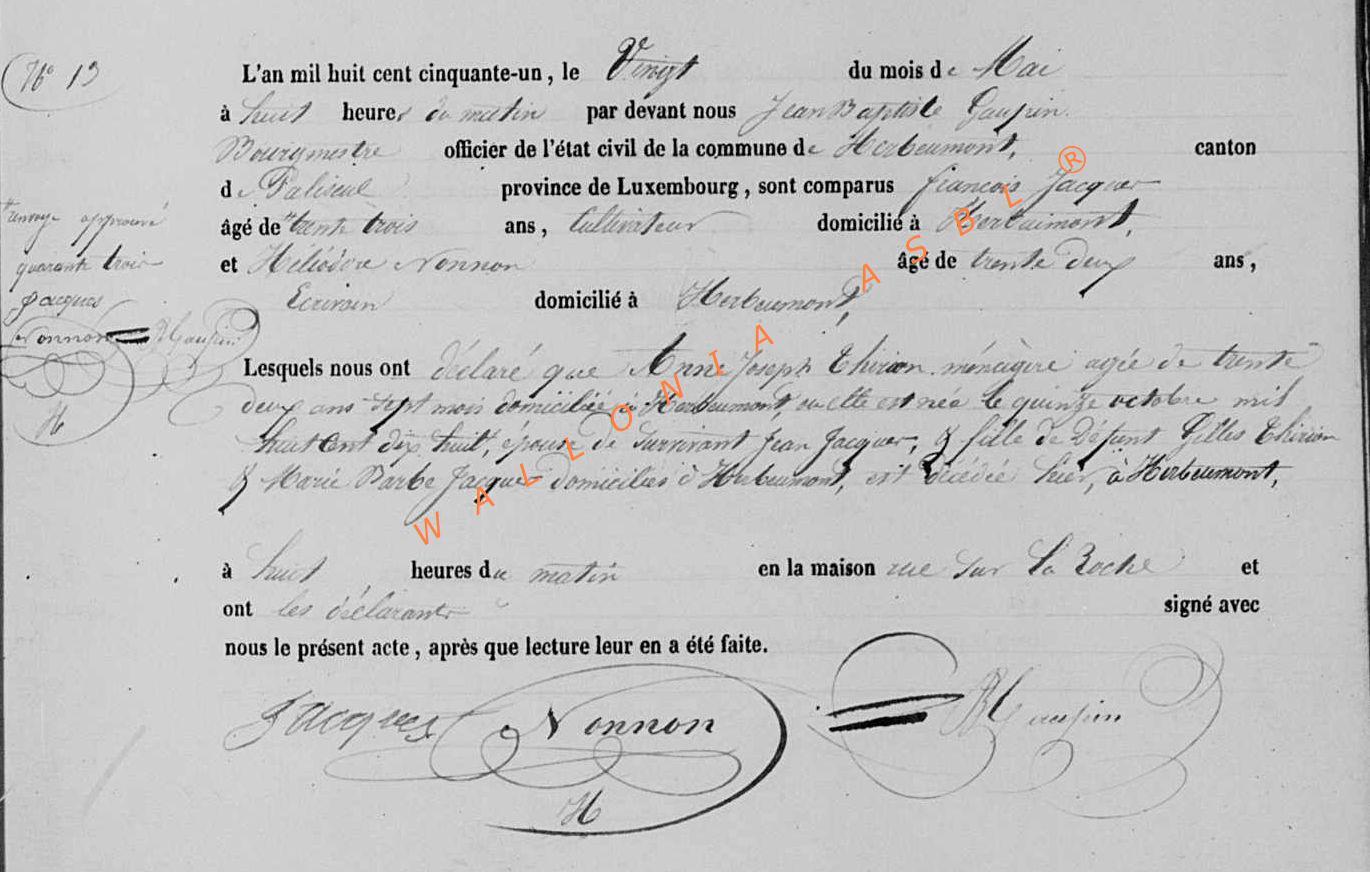 N° 13
L'an mil huit cent cinquante-un, le Vingt du mois de Mai
à huit heures du matin par devant nous Jean Baptiste Gaupin
Bourgmestre officier de l'état civil de la commune de Herbeumont, canton
de Paliseul province de Luxembourg, sont comparus françois Jacques
âgé de trente trois ans, Cultivateur domicilié à Herbeumont,
et Héliodore Nonnon âgé de trente deux ans,
Ecrivain domicilié à Herbeumont,
renvoye approuvé
quarante trois
Jacques
Nonnon Gaupin
H
Lesquels nous ont déclaré que Anne Joseph Thirion ménagère agée de trente
deux ans sept mois domiciliée à Herbeumont, ou elle est née le quinze octobre mil
huit cent dix huit, épouse de Survivant Jean Jacques, & fille de Défunt Gilles Thirion
& Marie Barbe Jacques domiciliés à Herbeumont, est décédée hier, à Herbeumont,
à huit heures du matin en la maison rue Sur la Roche et
ont les déclarants signé avec
nous le présent acte, après que lecture leur en a été faite.
Jacques Nonnon Gaupin
H
WALLONIA ASBL ®